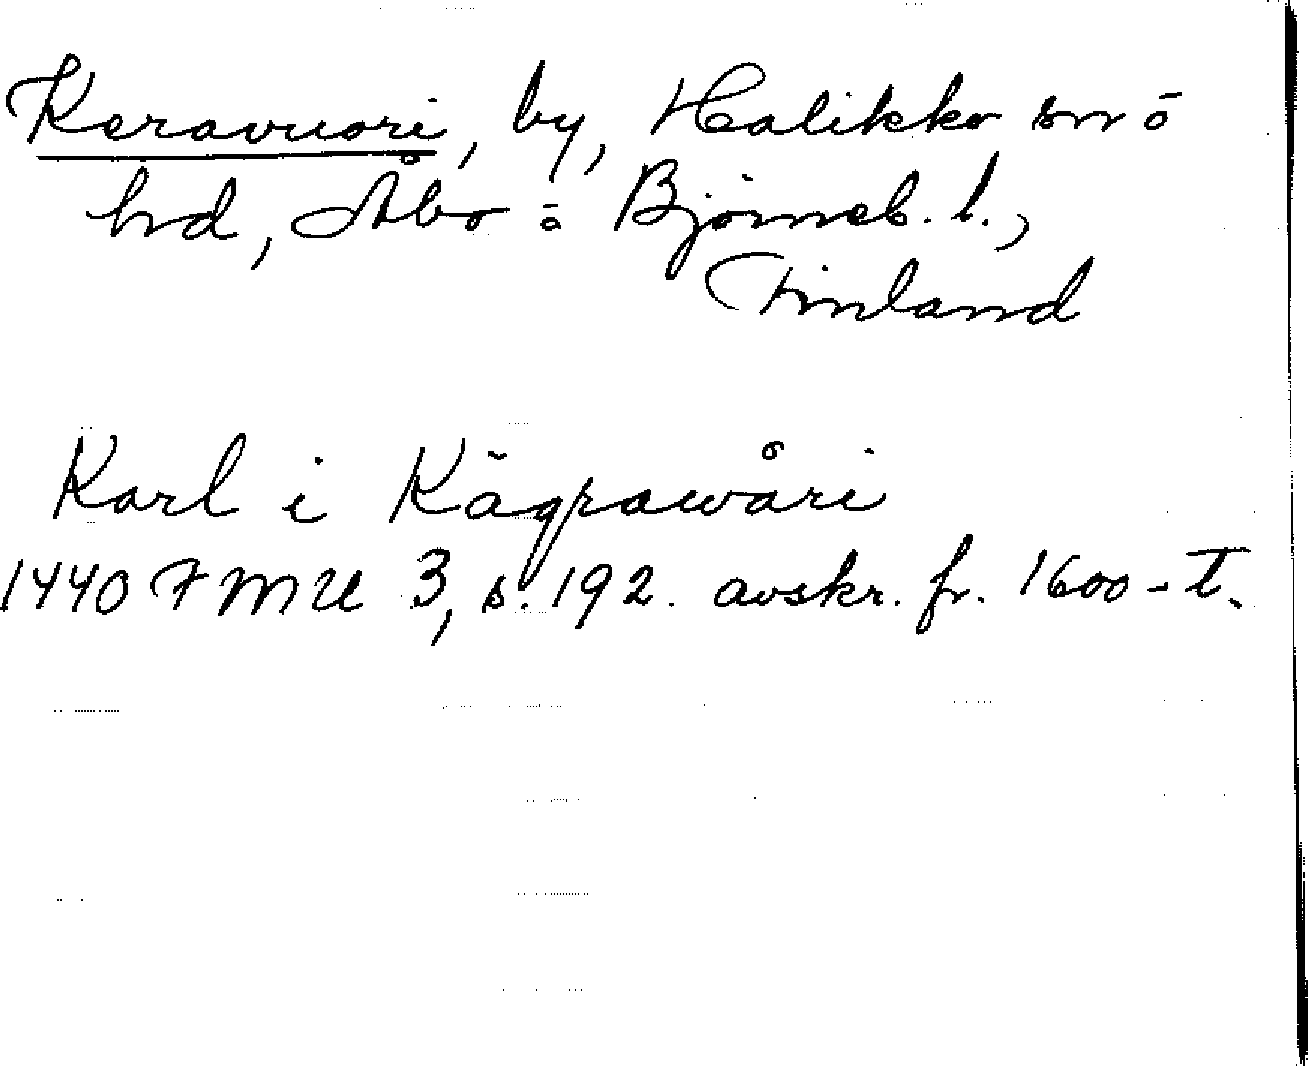 Keravuori, by, Halikko sn o
hd, Åbo o Björneb. l.,
Finland
Karl i Kägrawåri
1440 FMU 3, s. 192. avskr. fr. 1600-t.